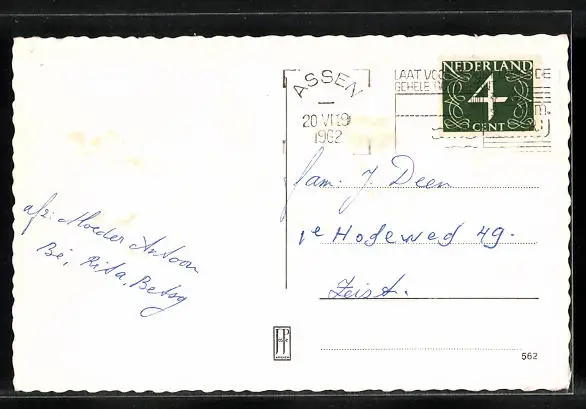 ASSEN
20 VI 19
1962
LAAT
GEHELE
NEDERLAND
4
CENT
fam: J. Deen
1e Hogeweg 49.
Zeist.
afz: Moeder Antoon
Bé, Rita, Betsy
562